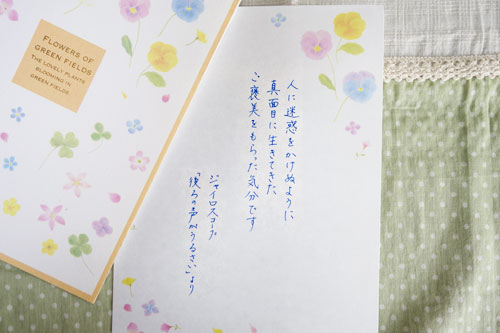 FLOWERS OF
GREEN FIELDS
THE LOVELY PLANTS
BLOOMING IN
GREEN FIELDS
人に迷惑をかけぬように
真面目に生きてきた
ご褒美をもらった気分です
ジャイロスコープ
「彼らの声がうるさい」より